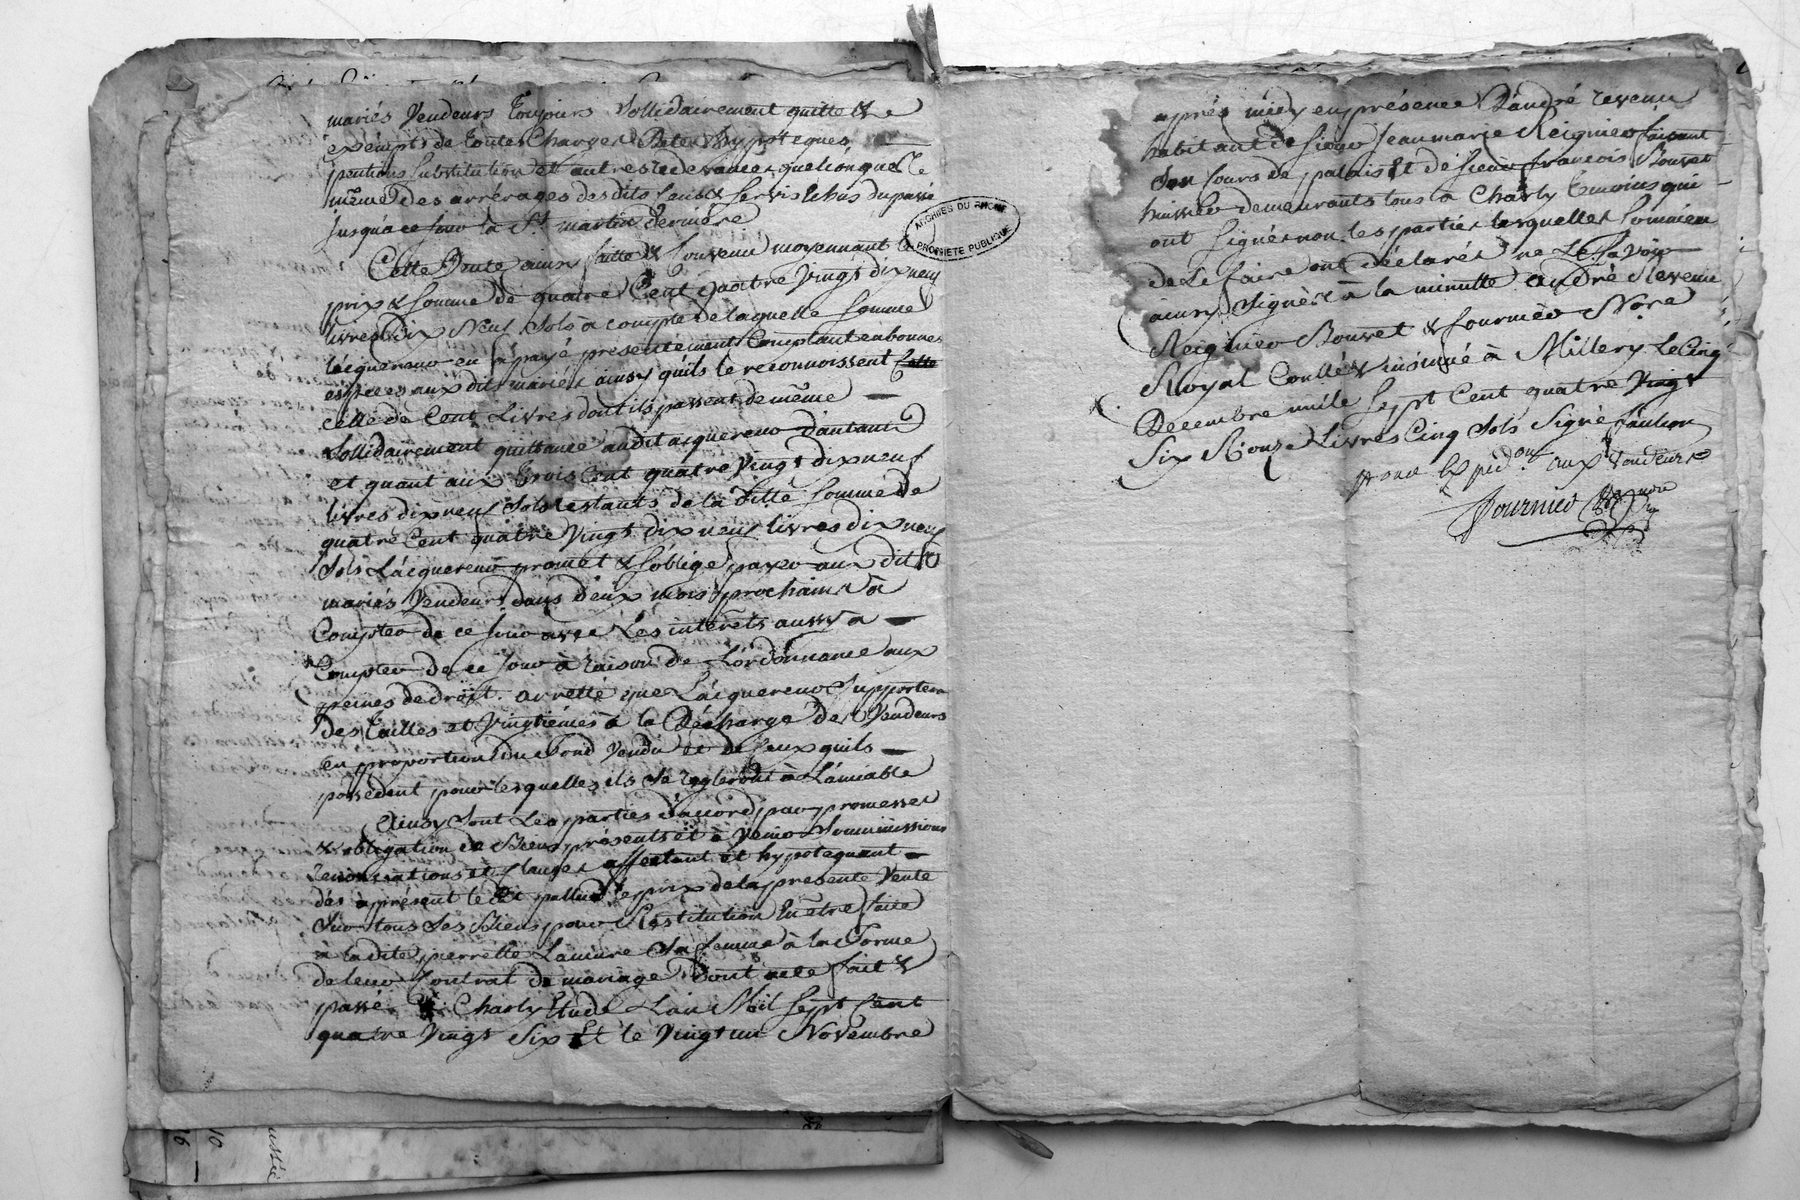 mariés Vendeurs toujours sollidairement quitte &
exempts de toutes Charges Detes hypoteques
pentions substitution et autres redevances quelconques &
même des arrérages des dits Cens & servis Echus du passé
jusqu'à ce jour la St martin derniere
Cette Vente ainsy faitte & Convenu moyennant le
prix & somme de quatre Cent quatre Vingt dix neuf
livres dix Neuf sols à compte de laquelle somme
lacquereur en à payé presentement Comptant en bonnes
espèces aux dit mariés ainsy quils le reconnoissent
celle de Cent Livres dont ils passent de même
sollidairement quittance audit acquereur d'autant
et quant aux trois Cent quatre Vingt dix neuf
livres dix neuf sols restants de la ditte somme de
quatre Cent quatre Vingt dix neuf livres dix neuf
sols Lacquereur promet & soblige payer aux dit
mariés Vendeurs dans deux mois prochains à
Compter de ce jour avec Les intérêts aussy à
Compter de ce jour à raison de L'ordonnance aux
peines de droit. arretté que Lacquereur supportera
des tailles et Vingtiémes à la Décharge des Vendeurs
en proportion du fond Vendu & de Ceux quils
possedent pour lesquelles ils se regleront à L'amiable
Ainsy sont Les parties d'accord par promesses
& obligation de Biens présents et à Venir soummissions
renonciations et Clauses affectant et hypotequant
dès à présent ledit pallud le prix de la presente Vente
sur tous ses Biens pour Restitution En être faite
à ladite pierrette Lamure Sa femme à la forme
de leur Contrat de mariage Dont acte fait &
passé à Charly Etude L'an Mil sept Cent
quatre Vingt Six Et le Vingt un Novembre
après midy en présence D'andré revenu
habitant de sieur Jean marie Reignier faisant
Son Cours de palais Et de sieur françois Bouvet
huissier demeurants tous à Charly temoins qui
ont signés non les parties lesquelles
de Le faire ont déclarés ne Le Savoir
ainsy Signés à la minutte andré Revenu
Reignier Bouvet & fournier Nore
Royal Conllé & insinué à Millery Le Cinq
Decembre mille sept Cent quatre Vingt
Six R onze Livres Cinq sols Signé faulion
pour Expédon. aux Vendeurs
Fournier
ARCHIVES DU RHONE
PROPRIETE PUBLIQUE